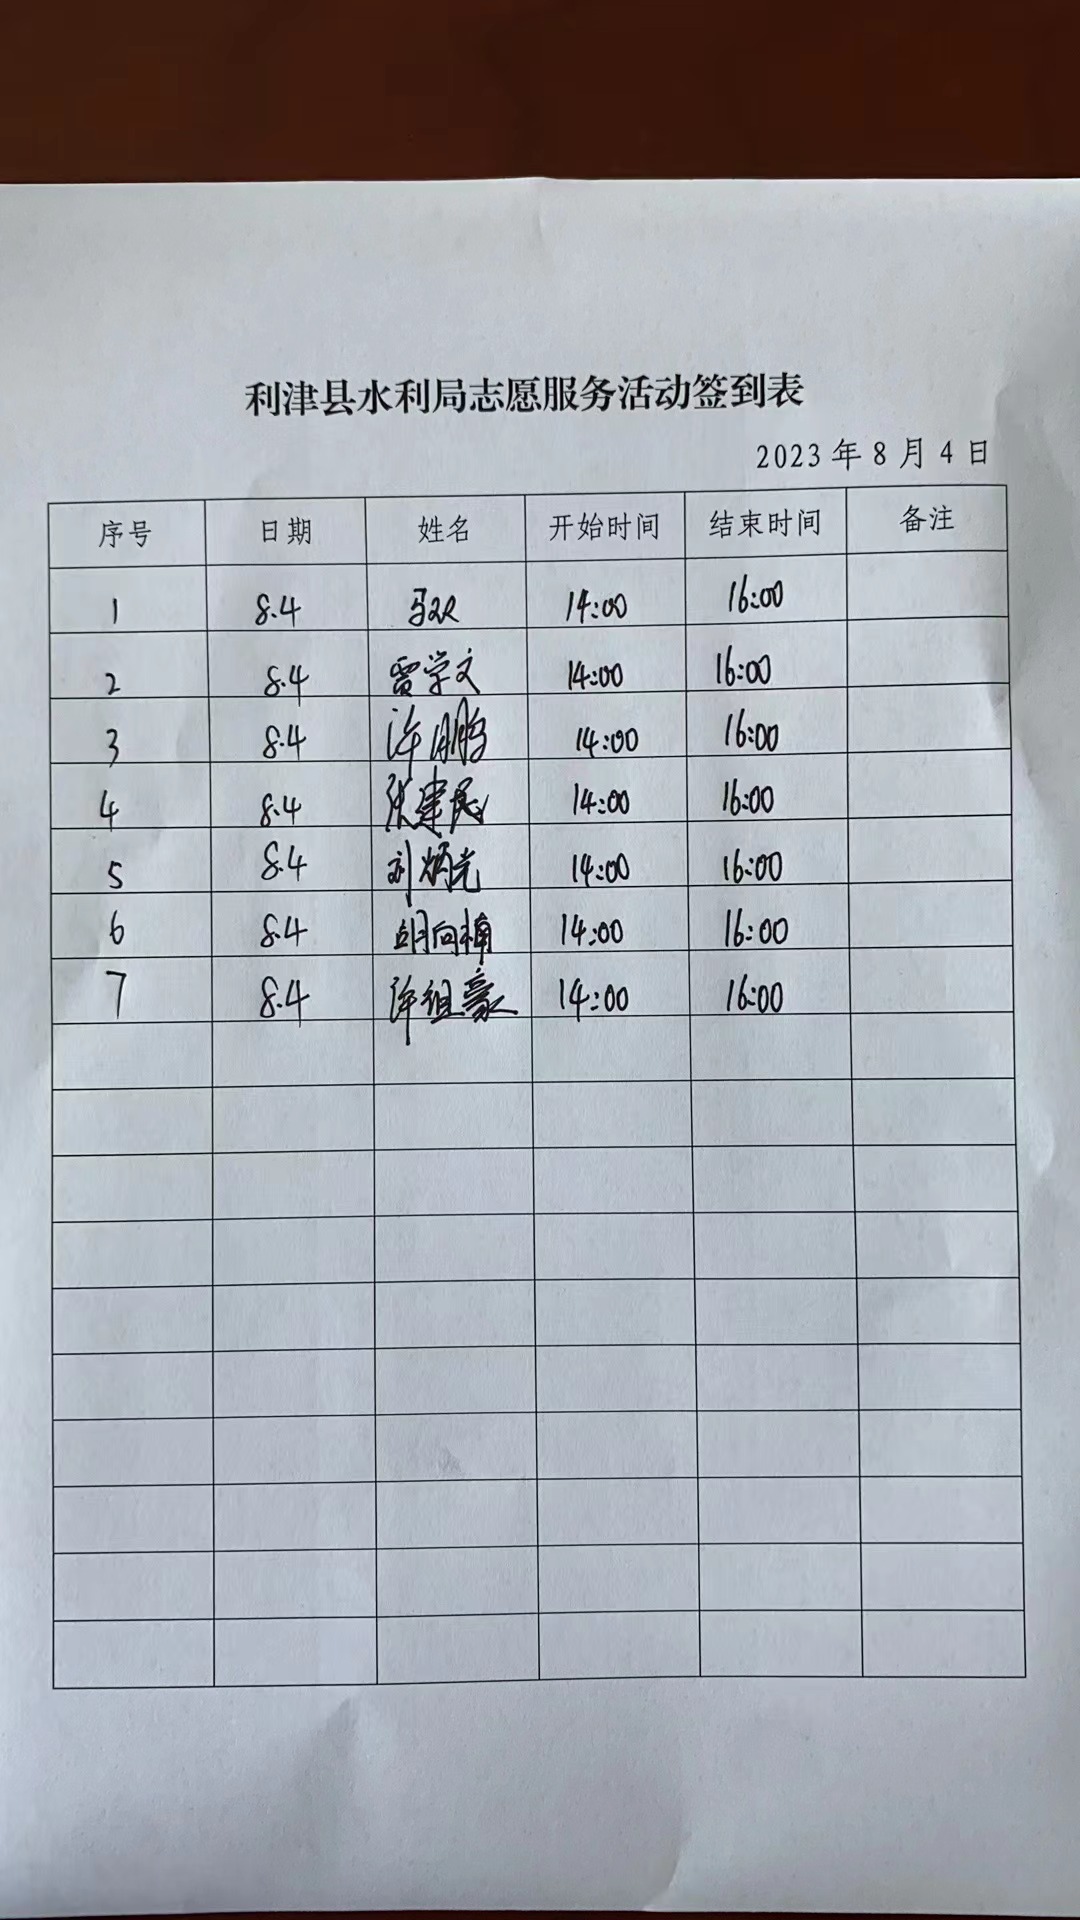 利津县水利局志愿服务活动签到表
2023年8月4日
序号 日期 姓名 开始时间 结束时间 备注
1 8.4 马双 14:00 16:00
2 8.4 贾学文 14:00 16:00
3 8.4 许鹏 14:00 16:00
4 8.4 张建民 14:00 16:00
5 8.4 刘炳光 14:00 16:00
6 8.4 胡向楠 14:00 16:00
7 8.4 许组豪 14:00 16:00